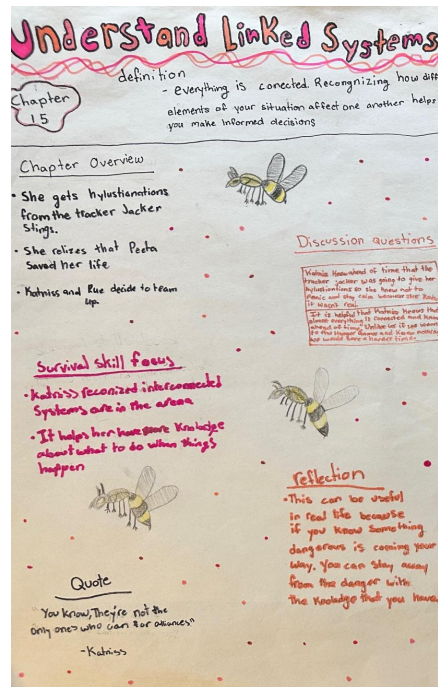 Understand Linked Systems
Chapter
15
definition
- everything is conected. Recongnizing how diff
elements of your situation affect one another helps
you make informed decisions
Chapter Overview
• She gets hylustianations
from the tracker Jacker
Stings.
• She relizes that Peeta
Saved her life
• Katniss and Rue decide to team
up.
Discussion questions
Katniss Knew ahead of time that the
tracker jacker was going to give her
hylustiantions so she knew not to
Panic and stay calm because she
it wasn't real.
It is helpful that Katniss Knows that
almost everything is connected and
ahead of time. Unlike us if we went
to the Hunger Games and Knew
we would have a harder time.
Survival skill focus
• Katniss reconized interconnected
Systems are in the arena
• It helps her have more Knoladge
about what to do when things
happen
reflection
• This can be useful
in real life because
if you know something
dangerous is coming your
way. You can stay away
from the danger with
the Knoladge that you have.
Quote
"You know, They're not the
only ones who can for alliances"
- Katniss